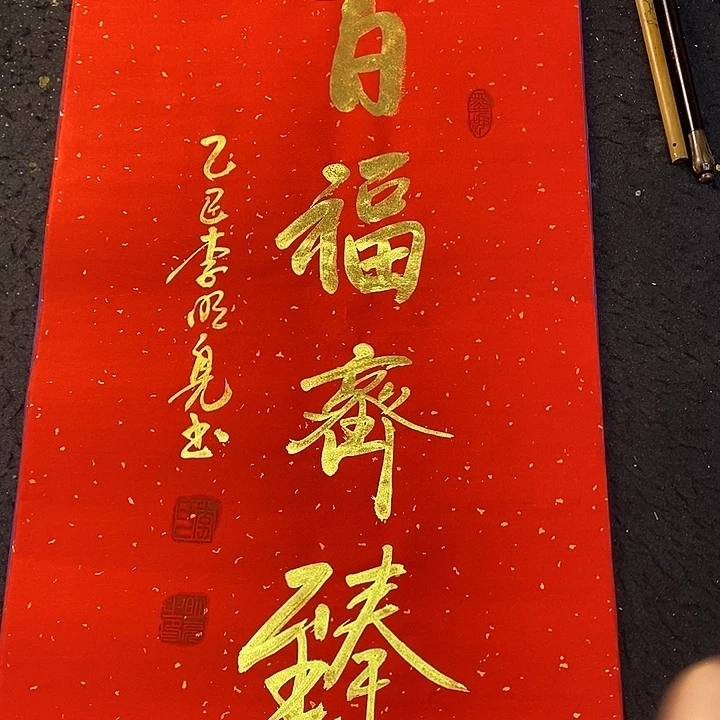 百福齊臻
乙巳李明亮书